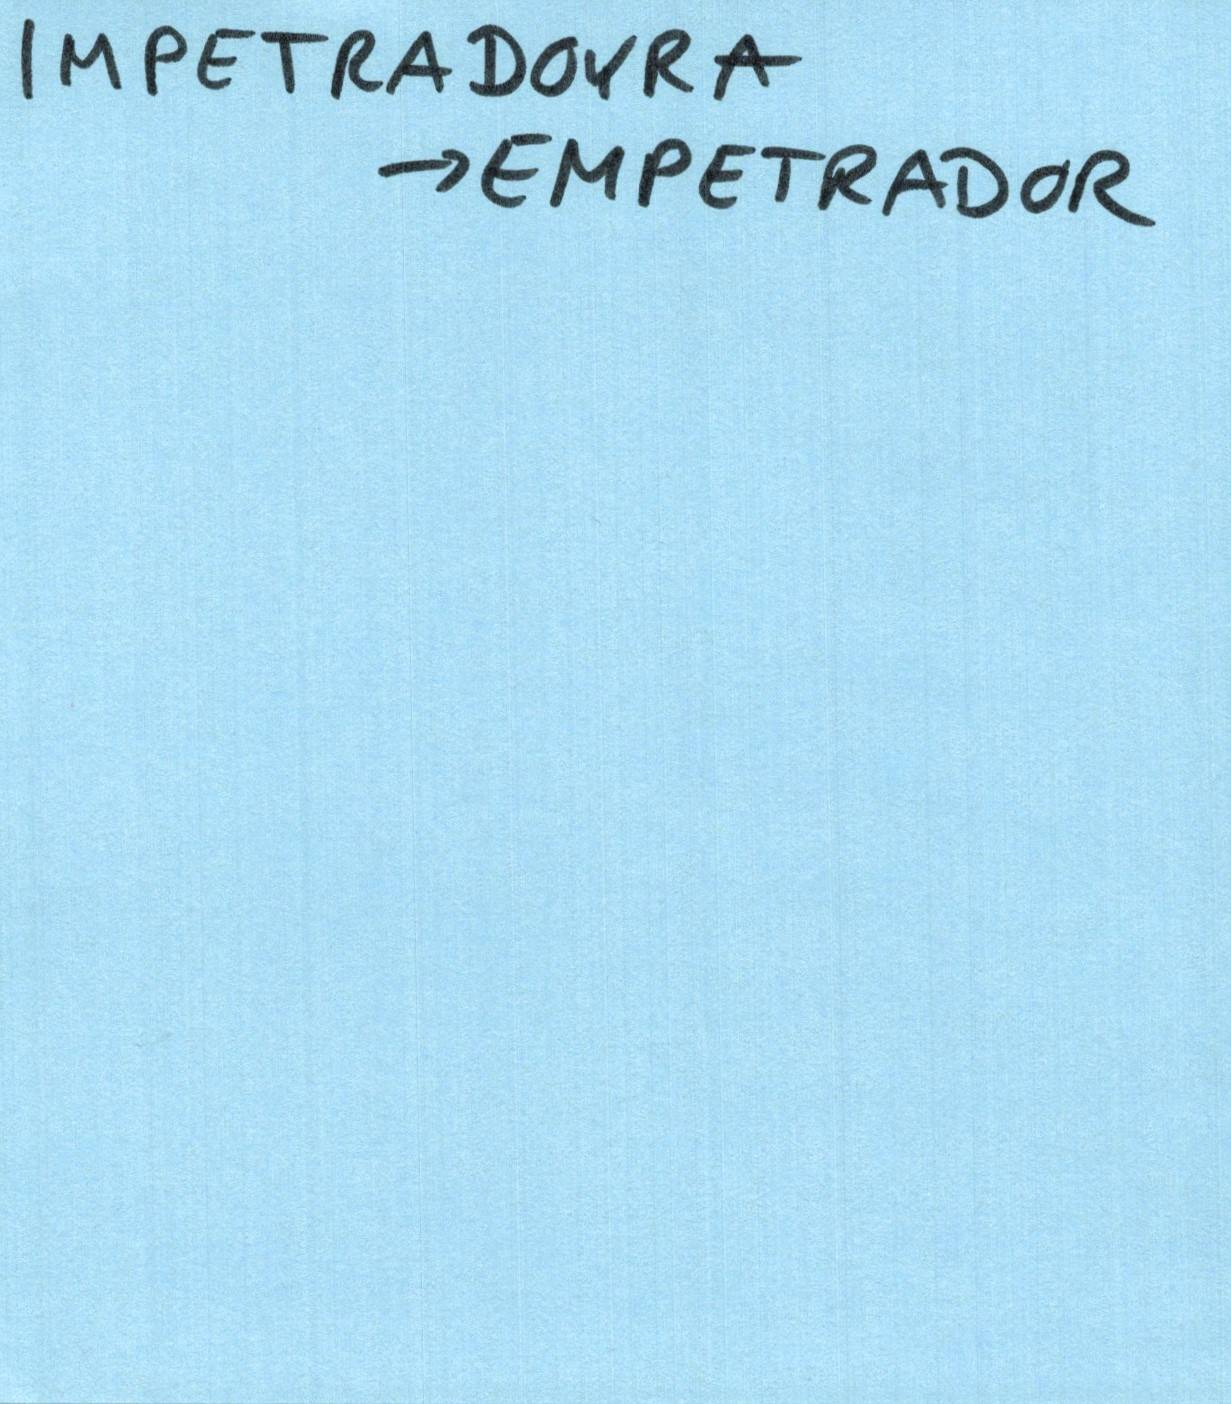 IMPETRADOYRA
→EMPETRADOR